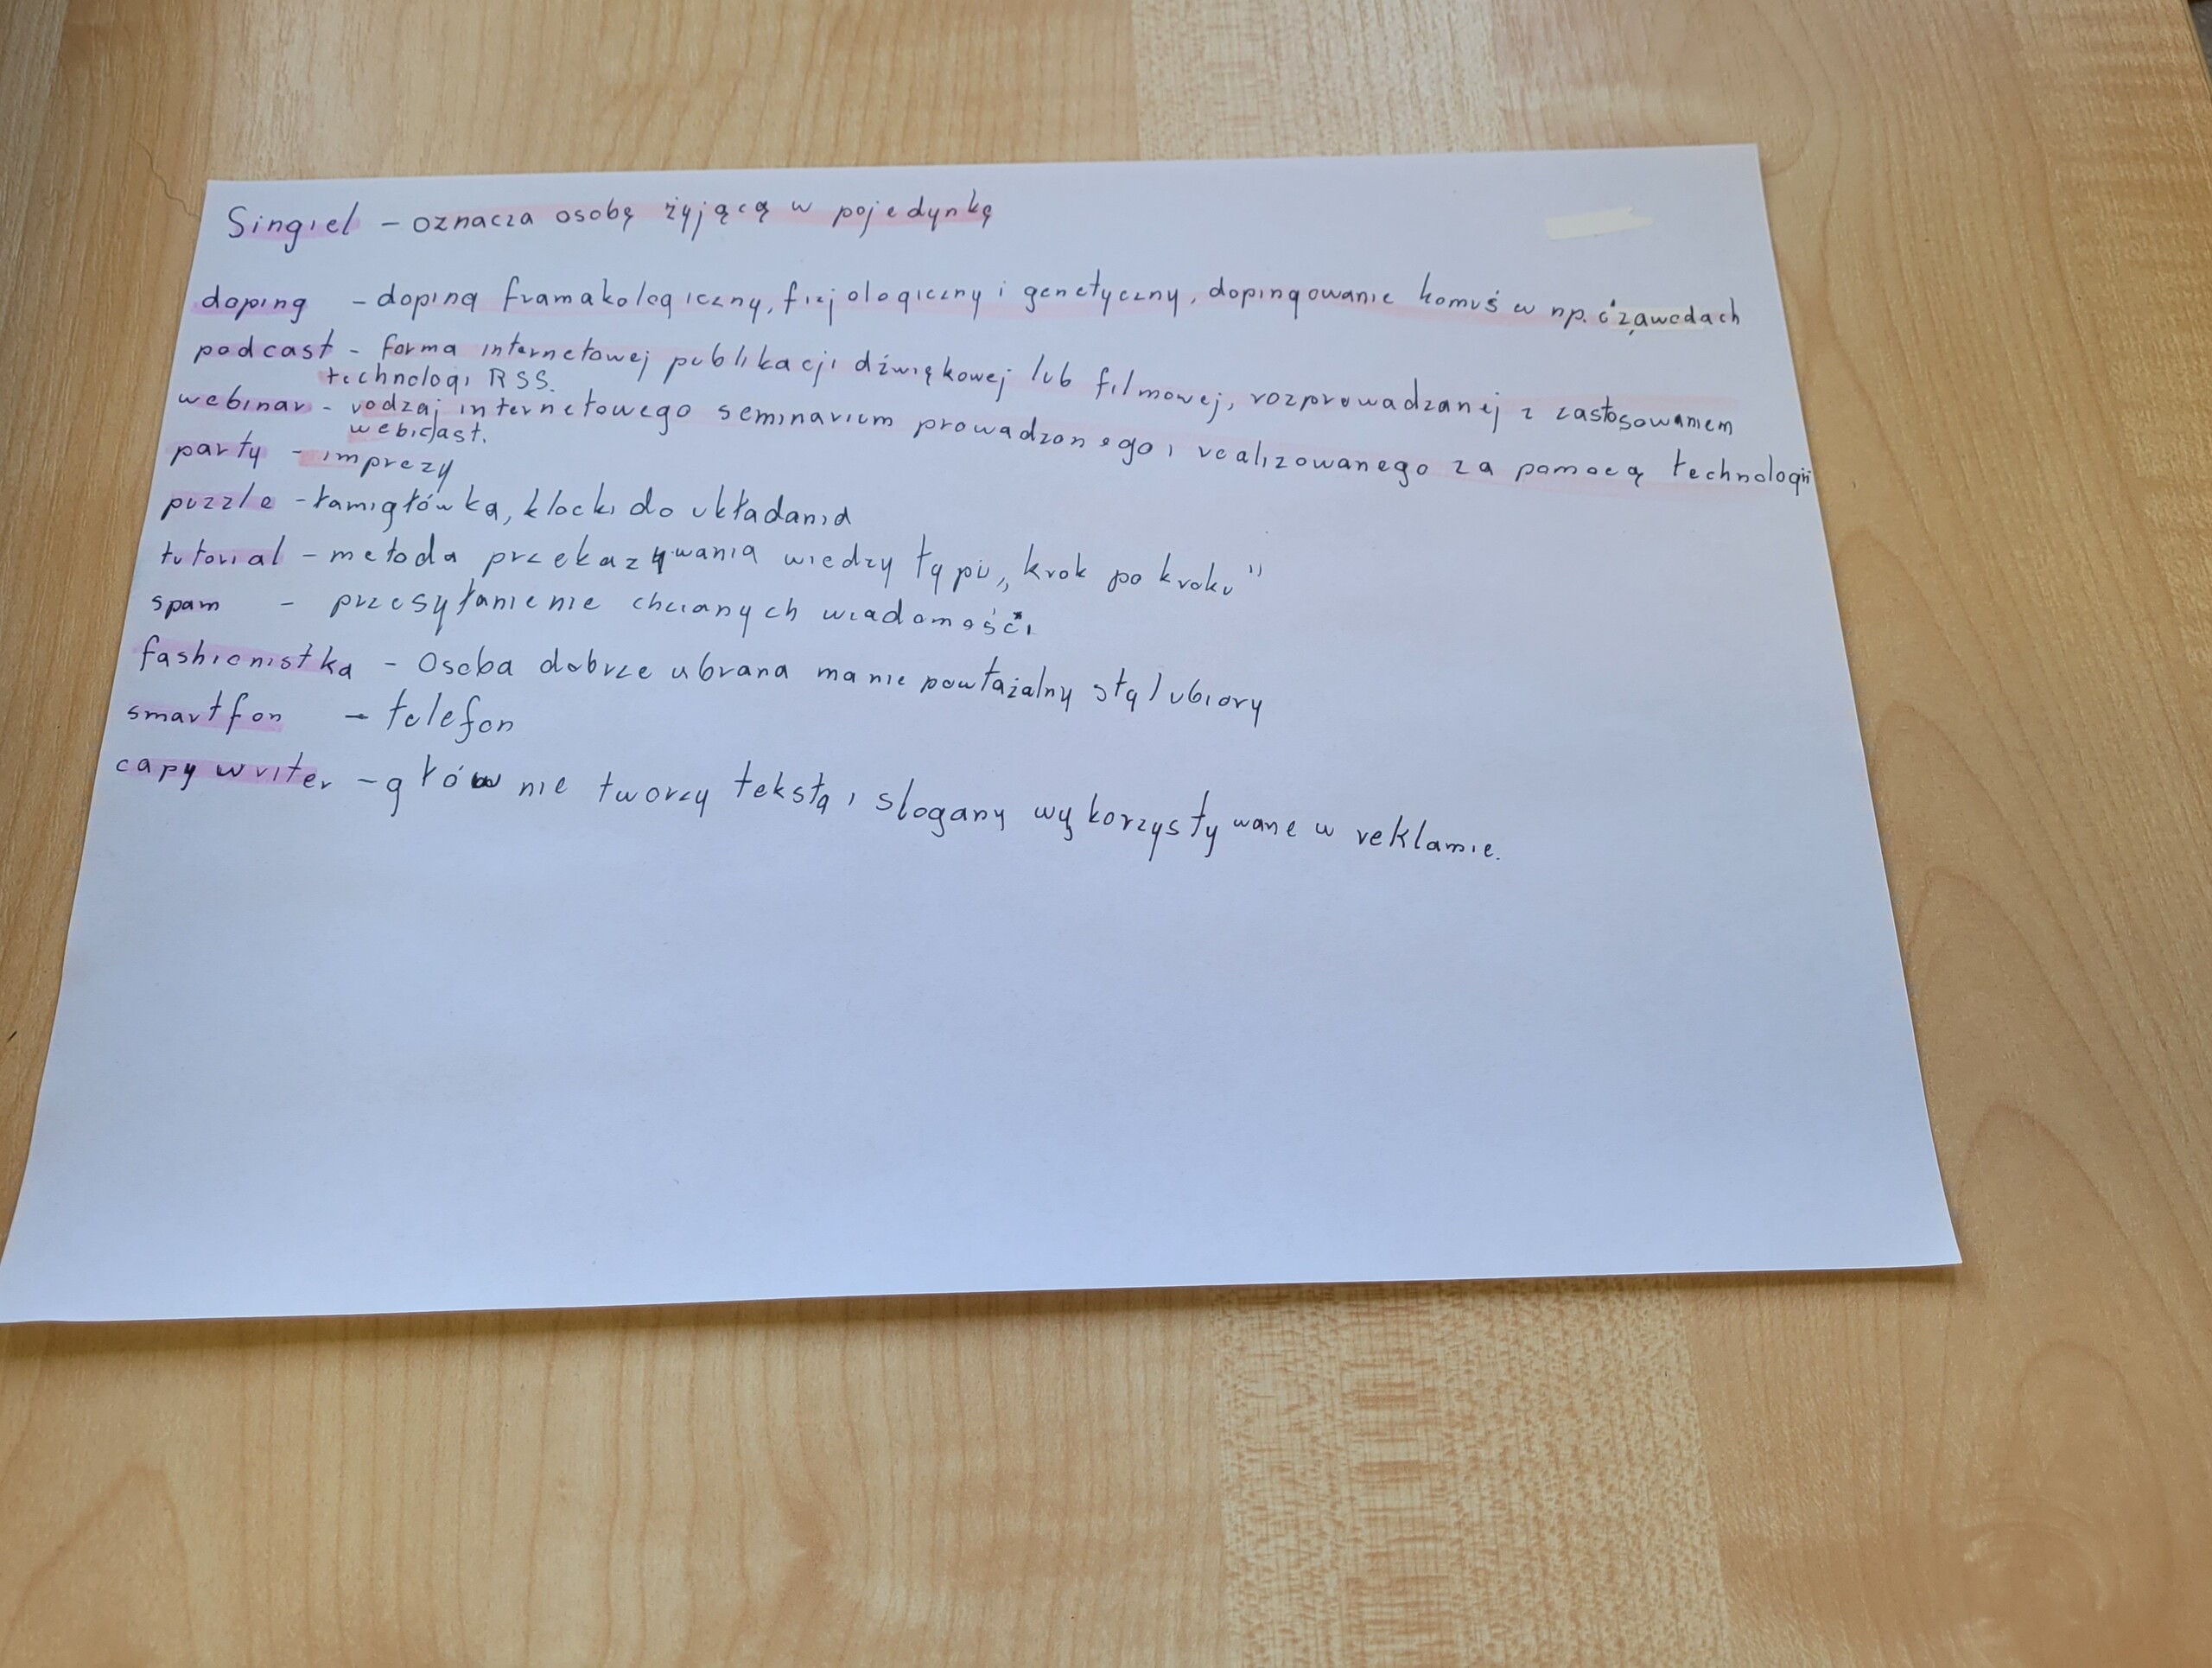 Singiel - oznacza osobę żyjącą w pojedynkę
doping - doping framakologiczny, fizjologiczny i genetyczny, dopingowanie komuś w np. zawodach
podcast - forma internetowej publikacji dźwiękowej lub filmowej, rozprowadzanej z zastosowaniem
technologi RSS.
webinar - rodzaj internetowego seminarium prowadzonego i realizowanego za pomocą technologii
webicast.
party - imprezy
puzzle - łamigłówka, klocki do układania
tutorial - metoda przekazywania wiedzy typu „krok po kroku"
spam - przesyłanie nie chcianych wiadomości
fashionistka - Osoba dobrze ubrana ma nie powtażalny styl ubiory
smartfon - telefon
capy writer - głównie tworzy teksty i slogany wykorzystywane w reklamie.